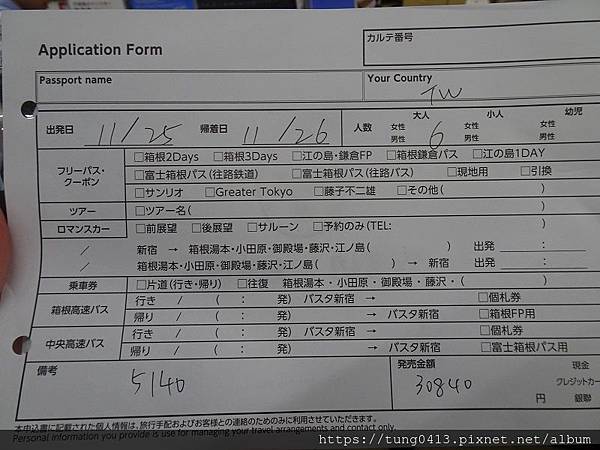 Application Form
カルテ番号
Passport name
Your Country
TW
大人 小人 幼児
出発日 11/25 帰着日 11/26 人数 女性 6 女性 女性
男性 男性 男性
フリーパス・クーポン □箱根2Days □箱根3Days □江の島・鎌倉FP □箱根鎌倉パス □江の島1DAY
□富士箱根パス(往路鉄道) □富士箱根パス(往路バス) □現地用 □引換
□サンリオ □Greater Tokyo □藤子不二雄 □その他( )
ツアー □ツアー名( )
ロマンスカー □前展望 □後展望 □サルーン □予約のみ(TEL: )
/ 新宿 → 箱根湯本・小田原・御殿場・藤沢・江ノ島( ) 出発 :
/ 箱根湯本・小田原・御殿場・藤沢・江ノ島( ) → 新宿 出発 :
乗車券 □片道(行き・帰り) □往復 箱根湯本・小田原・御殿場・藤沢・( )
箱根高速バス 行き / ( : 発) バスタ新宿 → □個札券
帰り / ( : 発) → バスタ新宿 □箱根FP用
中央高速バス 行き / ( : 発) バスタ新宿 → □個札券
帰り / ( : 発) → バスタ新宿 □富士箱根パス用
備考 5140
発売金額 30840 円
現金
クレジットカー
銀聯
本申込書に記載された個人情報は、旅行手配およびお客様との連絡のためのみに利用させていただきます。
Personal information you provide is use for managing your travel arrangements and contact only.
https://tung0413.pixnet.net/album